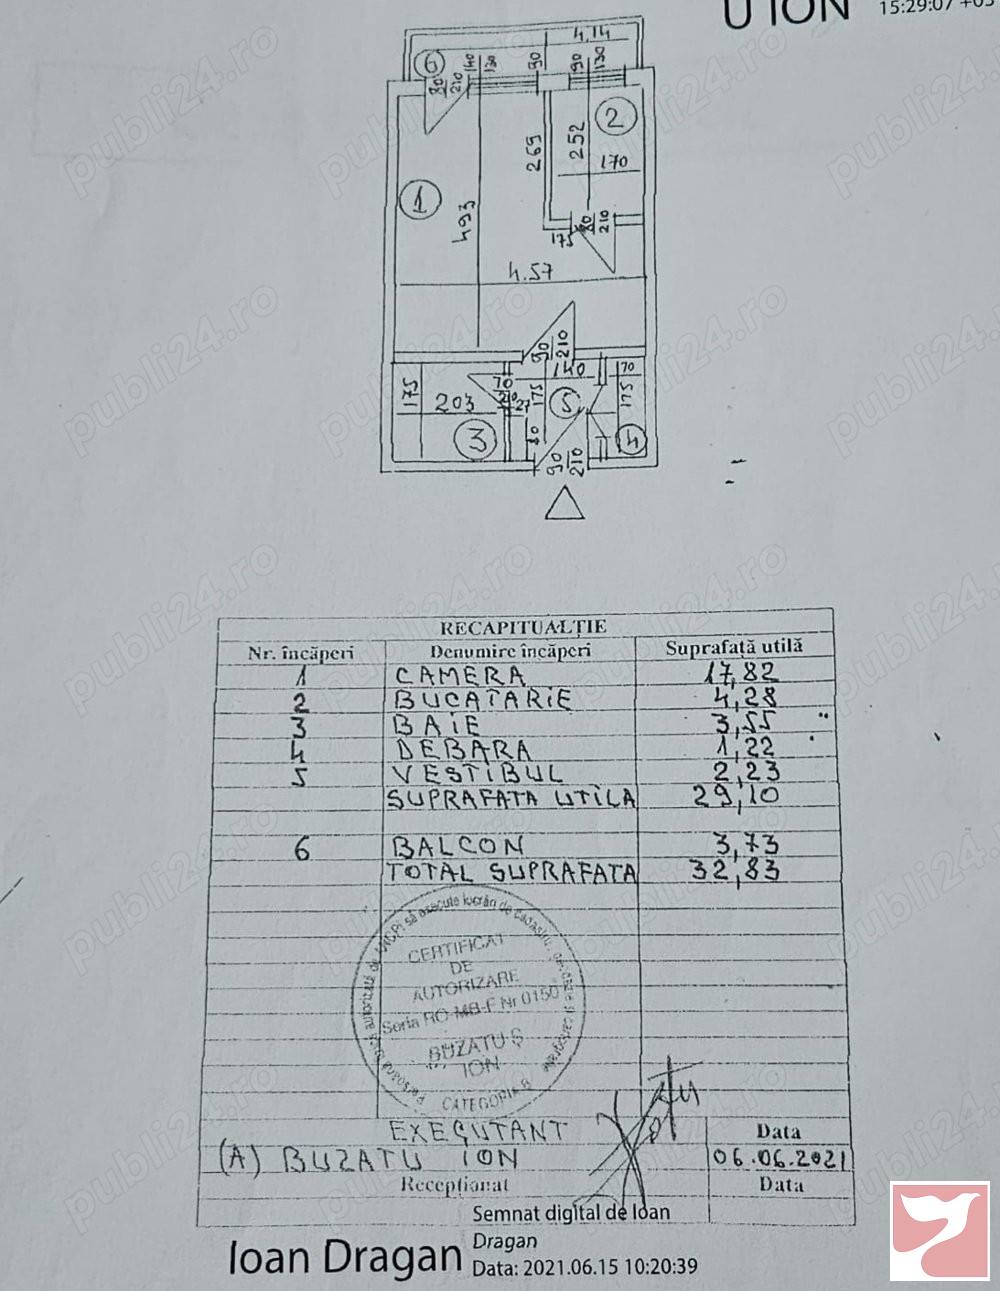 U ION
15:29:07 +03
4.14
6
80
210
140
130
90
190
130
2
269
252
170
1
493
175
80
210
4.57
90
210
140
70
175
203
70
27
175
5
175
80
3
4
90
210
RECAPITUALȚIE
Nr. încăperi Denumire încăperi Suprafață utilă
1 CAMERA 17,82
2 BUCATARIE 4,28
3 BAIE 3,55
4 DEBARA 1,22
5 VESTIBUL 2,23
SUPRAFATA UTILA 29,10
6 BALCON 3,73
TOTAL SUPRAFATA 32,83
CERTIFICAT
DE
AUTORIZARE
Seria RO-MB-F Nr 0150
BUZATU Ș
ION
CATEGORIA B
EXECUTANT Data
(A) BUZATU ION 06.06.2021
Recepționat Data
Semnat digital de Ioan
Dragan
Ioan Dragan
Data: 2021.06.15 10:20:39
publi24.ro